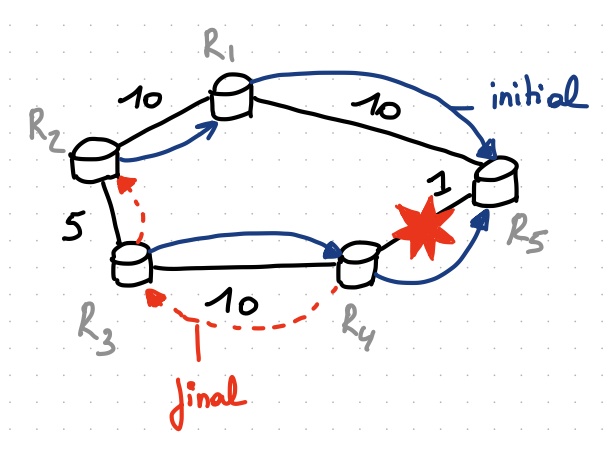 R1
10
10
initial
R2
1
5
R5
10
R3
R4
final